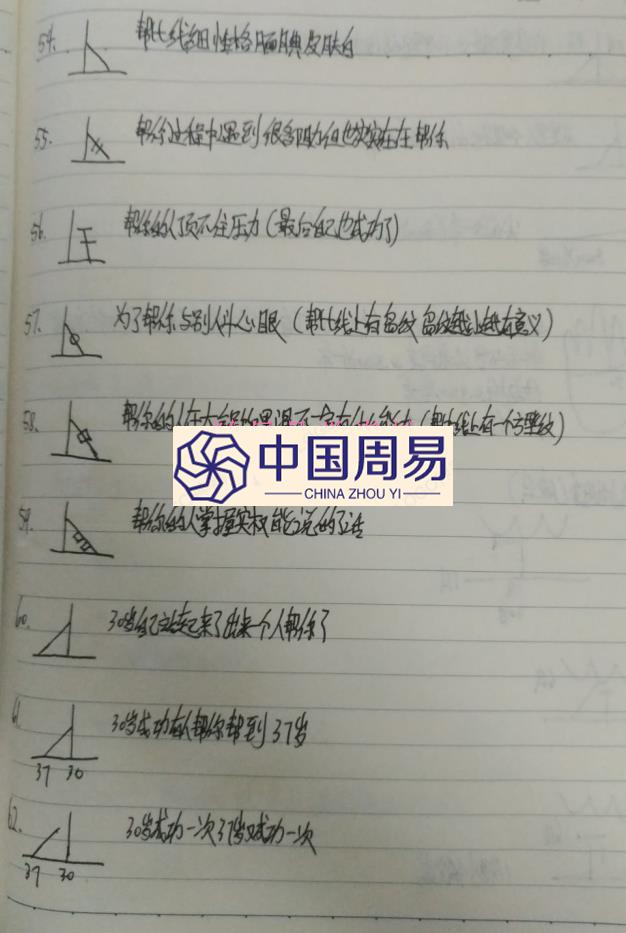 54. 帮扶线细性格腼腆皮肤白
55. 帮你过程中遇到很多阻力但也实实在在帮你
56. 帮你的人顶不住压力(最后自己也成功了)
57. 为了帮你与别人斗心眼(帮扶线上有岛纹 岛纹越小越有意义)
58. 帮你的人在大
中国周易
CHINA ZHOU YI
59. 帮你的人掌握实权能说的了话
60. 30岁自己站起来了出来一个人帮你了
61. 30岁成功有人帮你帮到37岁
37 30
62. 30岁成功一次37岁又成功一次
37 30